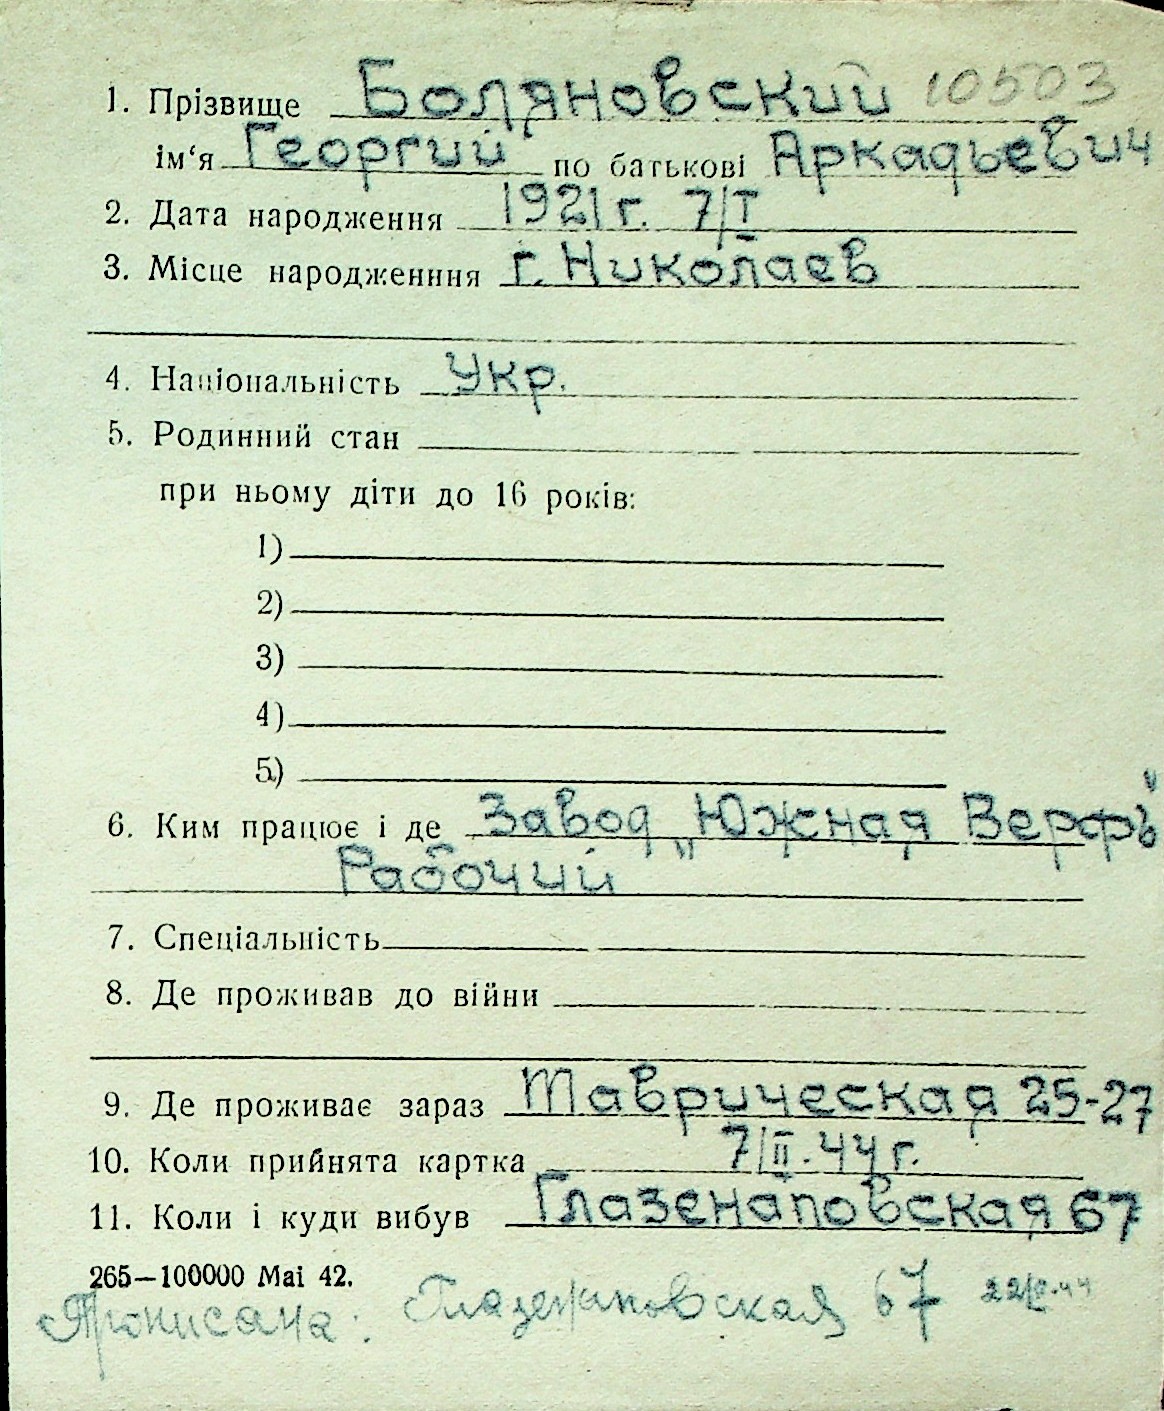 1. Прізвище Боляновский 10503
ім‘я Георгий по батькові Аркадьевич
2. Дата народження 1921 г. 7/I
3. Місце народженння г. Николаев
4. Національність Укр.
5. Родинний стан
при ньому діти до 16 років:
1)
2)
3)
4)
5)
6. Ким працює і де Завод „Южная Верфь"
Рабочий
7. Спеціальність
8. Де проживав до війни
9. Де проживає зараз Таврическая 25-27
10. Коли прийнята картка 7/II. 44 г.
11. Коли і куди вибув Глазенаповская 67
265—100000 Mai 42.
Прописана: Глазенаповская 67